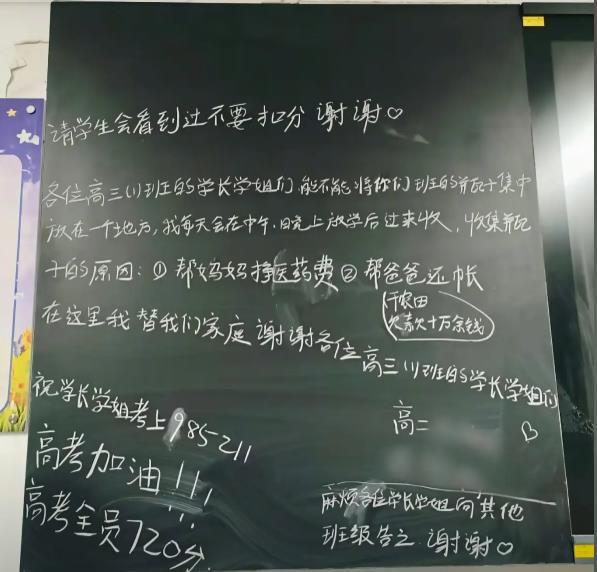 请学生会看到过不要扣分 谢谢♡
各位高三(1)班的学长学姐们,能不能将你们班的瓶子集中
放在一个地方,我每天会在中午、晚上放学后过来收,收集瓶
子的原因:① 帮妈妈挣医药费 ② 帮爸爸还帐
干农田
欠款十万余钱
在这里我替我们家庭谢谢各位高三(1)班的学长学姐们
高二 ♡
祝学长学姐考上985 211
高考加油!!!
高考全员720分
麻烦各位学长学姐向其他
班级告之 谢谢♡